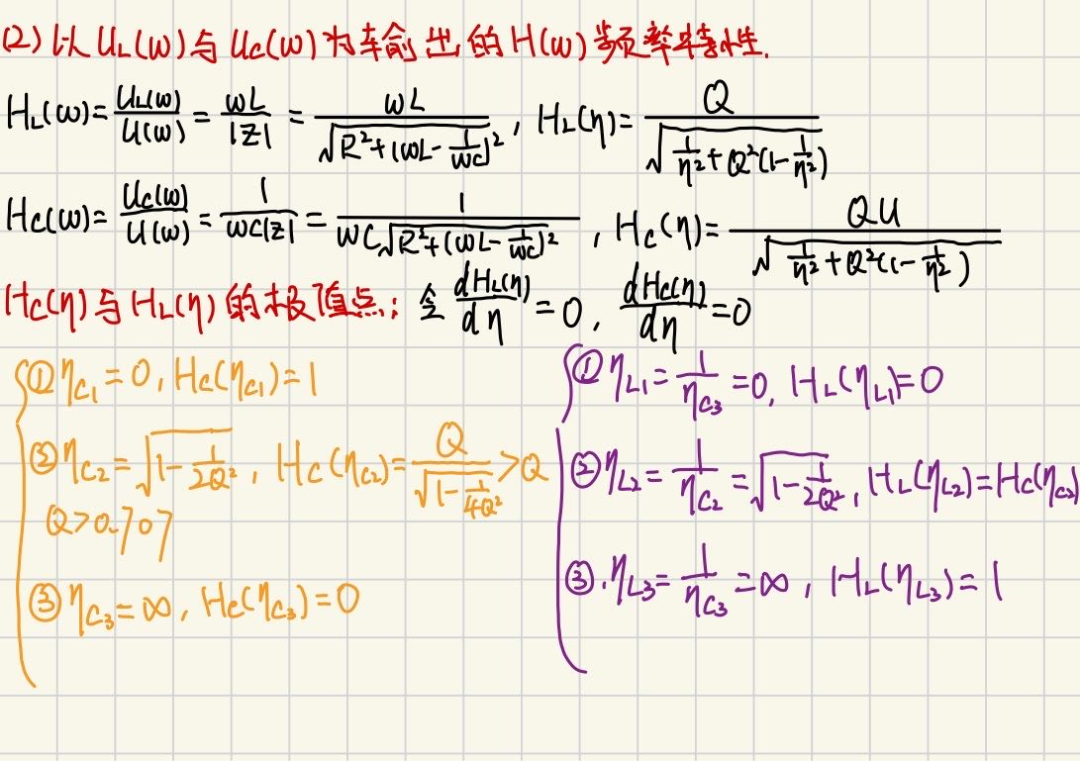 (2) 以 U_L(ω) 与 U_C(ω) 为输出的 H(ω) 频率特性.
H_L(ω) = U_L(ω)/U(ω) = ωL/|Z| = ωL/√(R²+(ωL-1/ωC)²), H_L(η) = Q/√(1/η²+Q²(1-1/η²))
H_C(ω) = U_C(ω)/U(ω) = 1/ωC|Z| = 1/ωC√(R²+(ωL-1/ωC)²), H_C(η) = QU/√(1/η²+Q²(1-1/η²))
H_C(η) 与 H_L(η) 的极值点: 令 dH_L(η)/dη = 0, dH_C(η)/dη = 0
① η_C₁ = 0, H_C(η_C₁) = 1
② η_C₂ = √(1-1/2Q²), H_C(η_C₂) = Q/√(1-1/4Q²) > Q
Q > 0.707
③ η_C₃ = ∞, H_C(η_C₃) = 0
① η_L₁ = 1/η_C₃ = 0, H_L(η_L₁) = 0
② η_L₂ = 1/η_C₂ = √(1-1/2Q²), H_L(η_L₂) = H_C(η_C₂)
③. η_L₃ = 1/η_C₃ = ∞, H_L(η_L₃) = 1